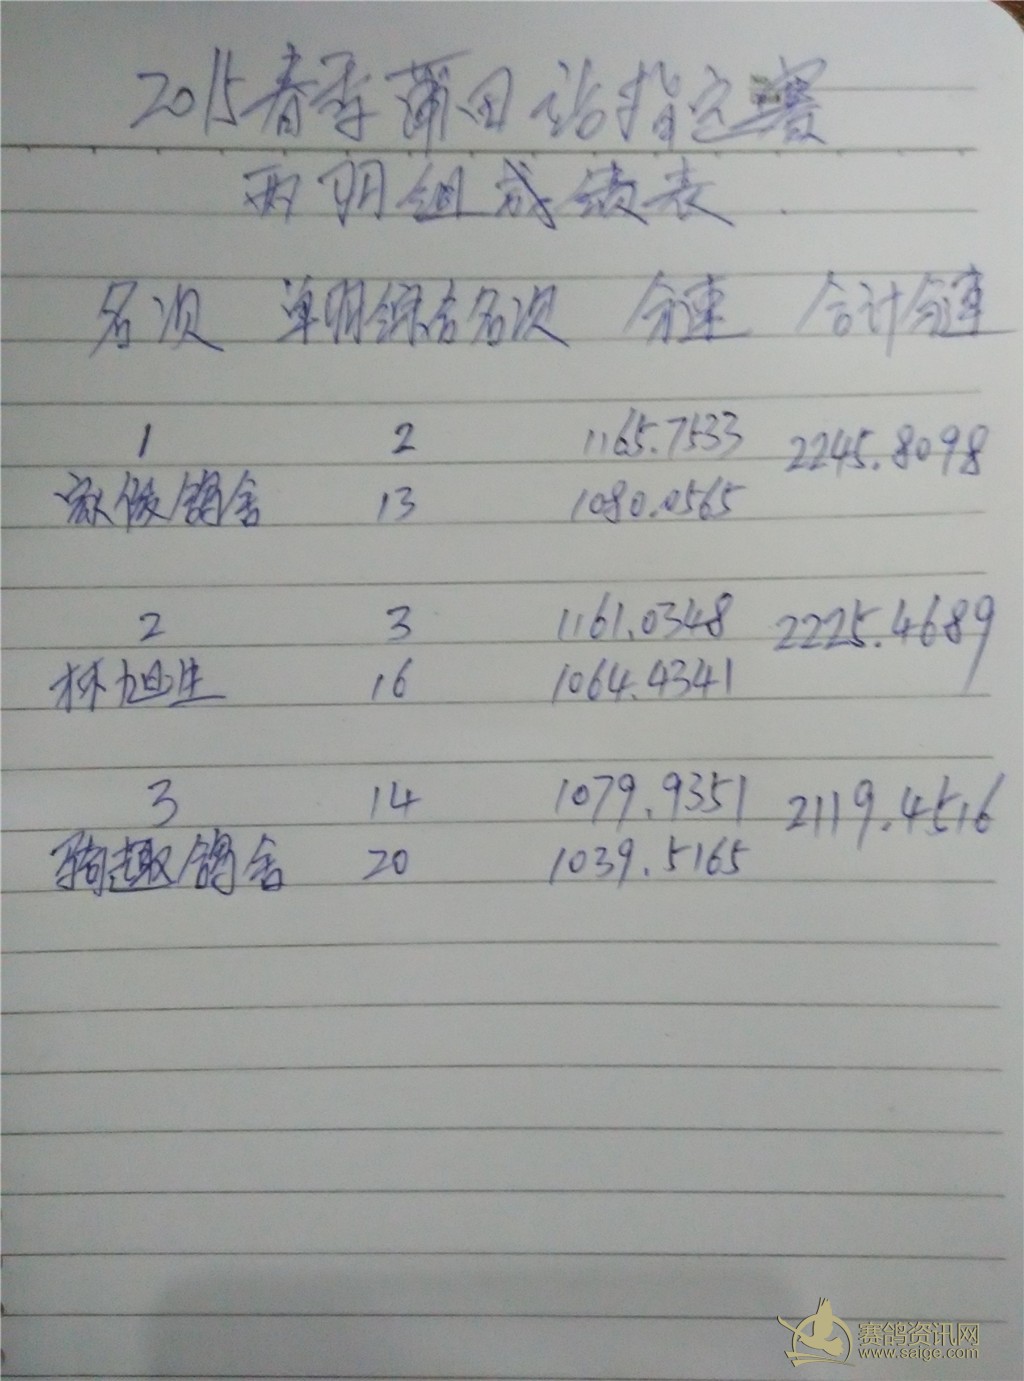 2015春季莆田站指定赛
两羽组成绩表
名次 单羽综合名次 分速 合计分速
1 2 1165.7533 2245.8098
鸽舍 13 1080.0565
2 3 1161.0348 2225.4689
林旭生 16 1064.4341
3 14 1079.9351 2119.4516
骑趣鸽舍 20 1039.5165
赛鸽资讯网
www.saige.com